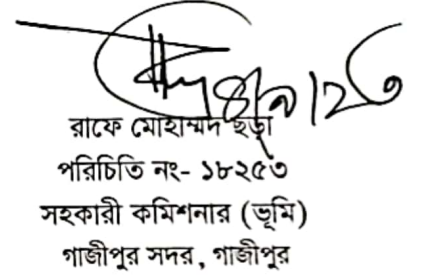 রাফে মোহাম্মদ ছড়া
পরিচিতি নং- ১৮২৫৩
সহকারী কমিশনার (ভূমি)
গাজীপুর সদর, গাজীপুর